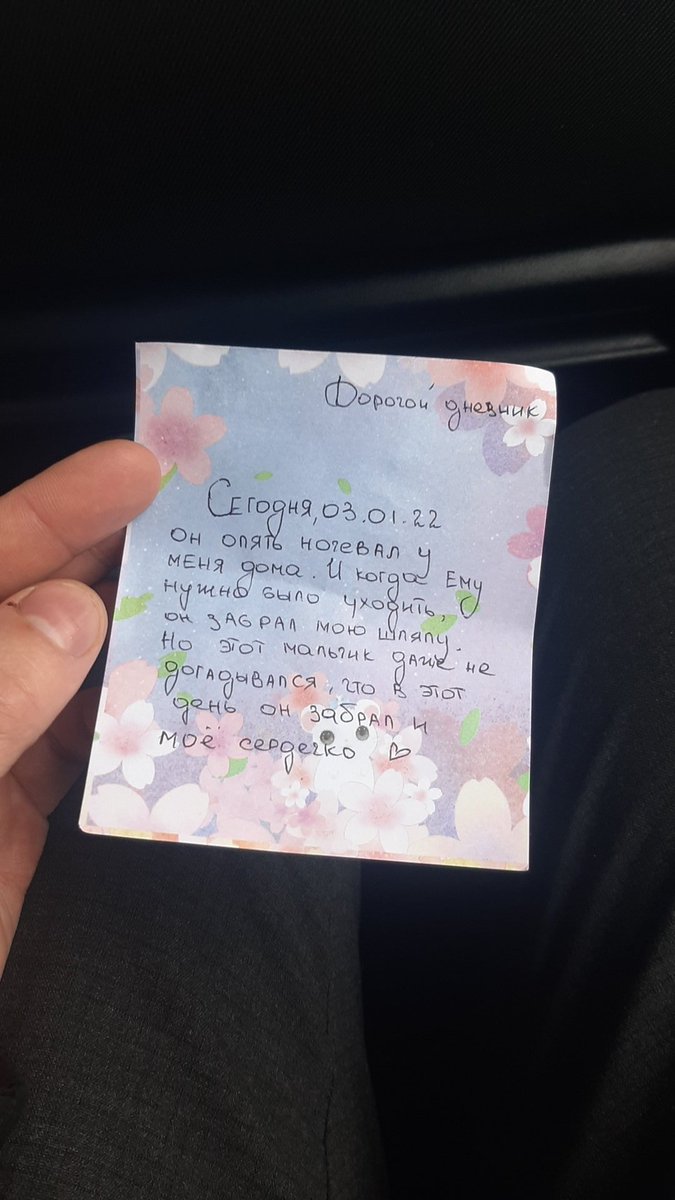 Дорогой дневник
Сегодня, 03.01.22
он опять ночевал у
меня дома. И когда Ему
нужно было уходить,
он забрал мою шляпу.
Но этот мальчик даже не
догадывался, что в этот
день он забрал и
моё сердечко ♡